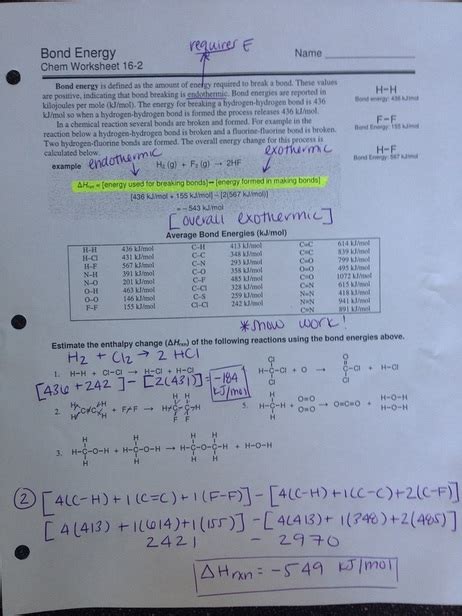 requires E
Bond Energy
Name
Chem Worksheet 16-2
Bond energy is defined as the amount of energy required to break a bond. These values
are positive, indicating that bond breaking is endothermic. Bond energies are reported in
kilojoules per mole (kJ/mol). The energy for breaking a hydrogen-hydrogen bond is 436
kJ/mol so when a hydrogen-hydrogen bond is formed the process releases 436 kJ/mol.
In a chemical reaction several bonds are broken and formed. For example in the
reaction below a hydrogen-hydrogen bond is broken and a fluorine-fluorine bond is broken.
Two hydrogen-fluorine bonds are formed. The overall energy change for this process is
calculated below.
H–H
Bond energy: 436 kJ/mol
F–F
Bond Energy: 155 kJ/mol
H–F
Bond Energy: 567 kJ/mol
endothermic exothermic
example H₂ (g) + F₂ (g) → 2HF
ΔHrxn = [energy used for breaking bonds] – [energy formed in making bonds]
[436 kJ/mol + 155 kJ/mol] – [2(567 kJ/mol)]
= –543 kJ/mol
[overall exothermic]
Average Bond Energies (kJ/mol)
H–H 436 kJ/mol C–H 413 kJ/mol C=C 614 kJ/mol
H–Cl 431 kJ/mol C–C 348 kJ/mol C≡C 839 kJ/mol
H–F 567 kJ/mol C–N 293 kJ/mol C=O 799 kJ/mol
N–H 391 kJ/mol C–O 358 kJ/mol O=O 495 kJ/mol
N–O 201 kJ/mol C–F 485 kJ/mol C≡O 1072 kJ/mol
O–H 463 kJ/mol C–Cl 328 kJ/mol C=N 615 kJ/mol
O–O 146 kJ/mol C–S 259 kJ/mol N=N 418 kJ/mol
F–F 155 kJ/mol Cl–Cl 242 kJ/mol N≡N 941 kJ/mol
C≡N 891 kJ/mol
*show work!
Estimate the enthalpy change (ΔHrxn) of the following reactions using the bond energies above.
H₂ + Cl₂ → 2 HCl
1. H–H + Cl–Cl → H–Cl + H–Cl
[436 + 242] – [2(431)] = –184 kJ/mol
Cl O
H–C–Cl + O → C–Cl + H–Cl
Cl Cl
H H
2. C=C + F–F → H–C–C–F
H H
5. H–C–H + O=O O=O → O=C=O + H–O–H H–O–H
H H H H
3. H–C–O–H + H–C–O–H → H–C–O–C–H + H–O–H
H H H H
② [4(C–H) + 1(C=C) + 1(F–F)] – [4(C–H) + 1(C–C) + 2(C–F)]
[4(413) + 1(614) + 1(155)] – [4(413) + 1(348) + 2(485)]
2421 – 2970
ΔHrxn = –549 kJ/mol